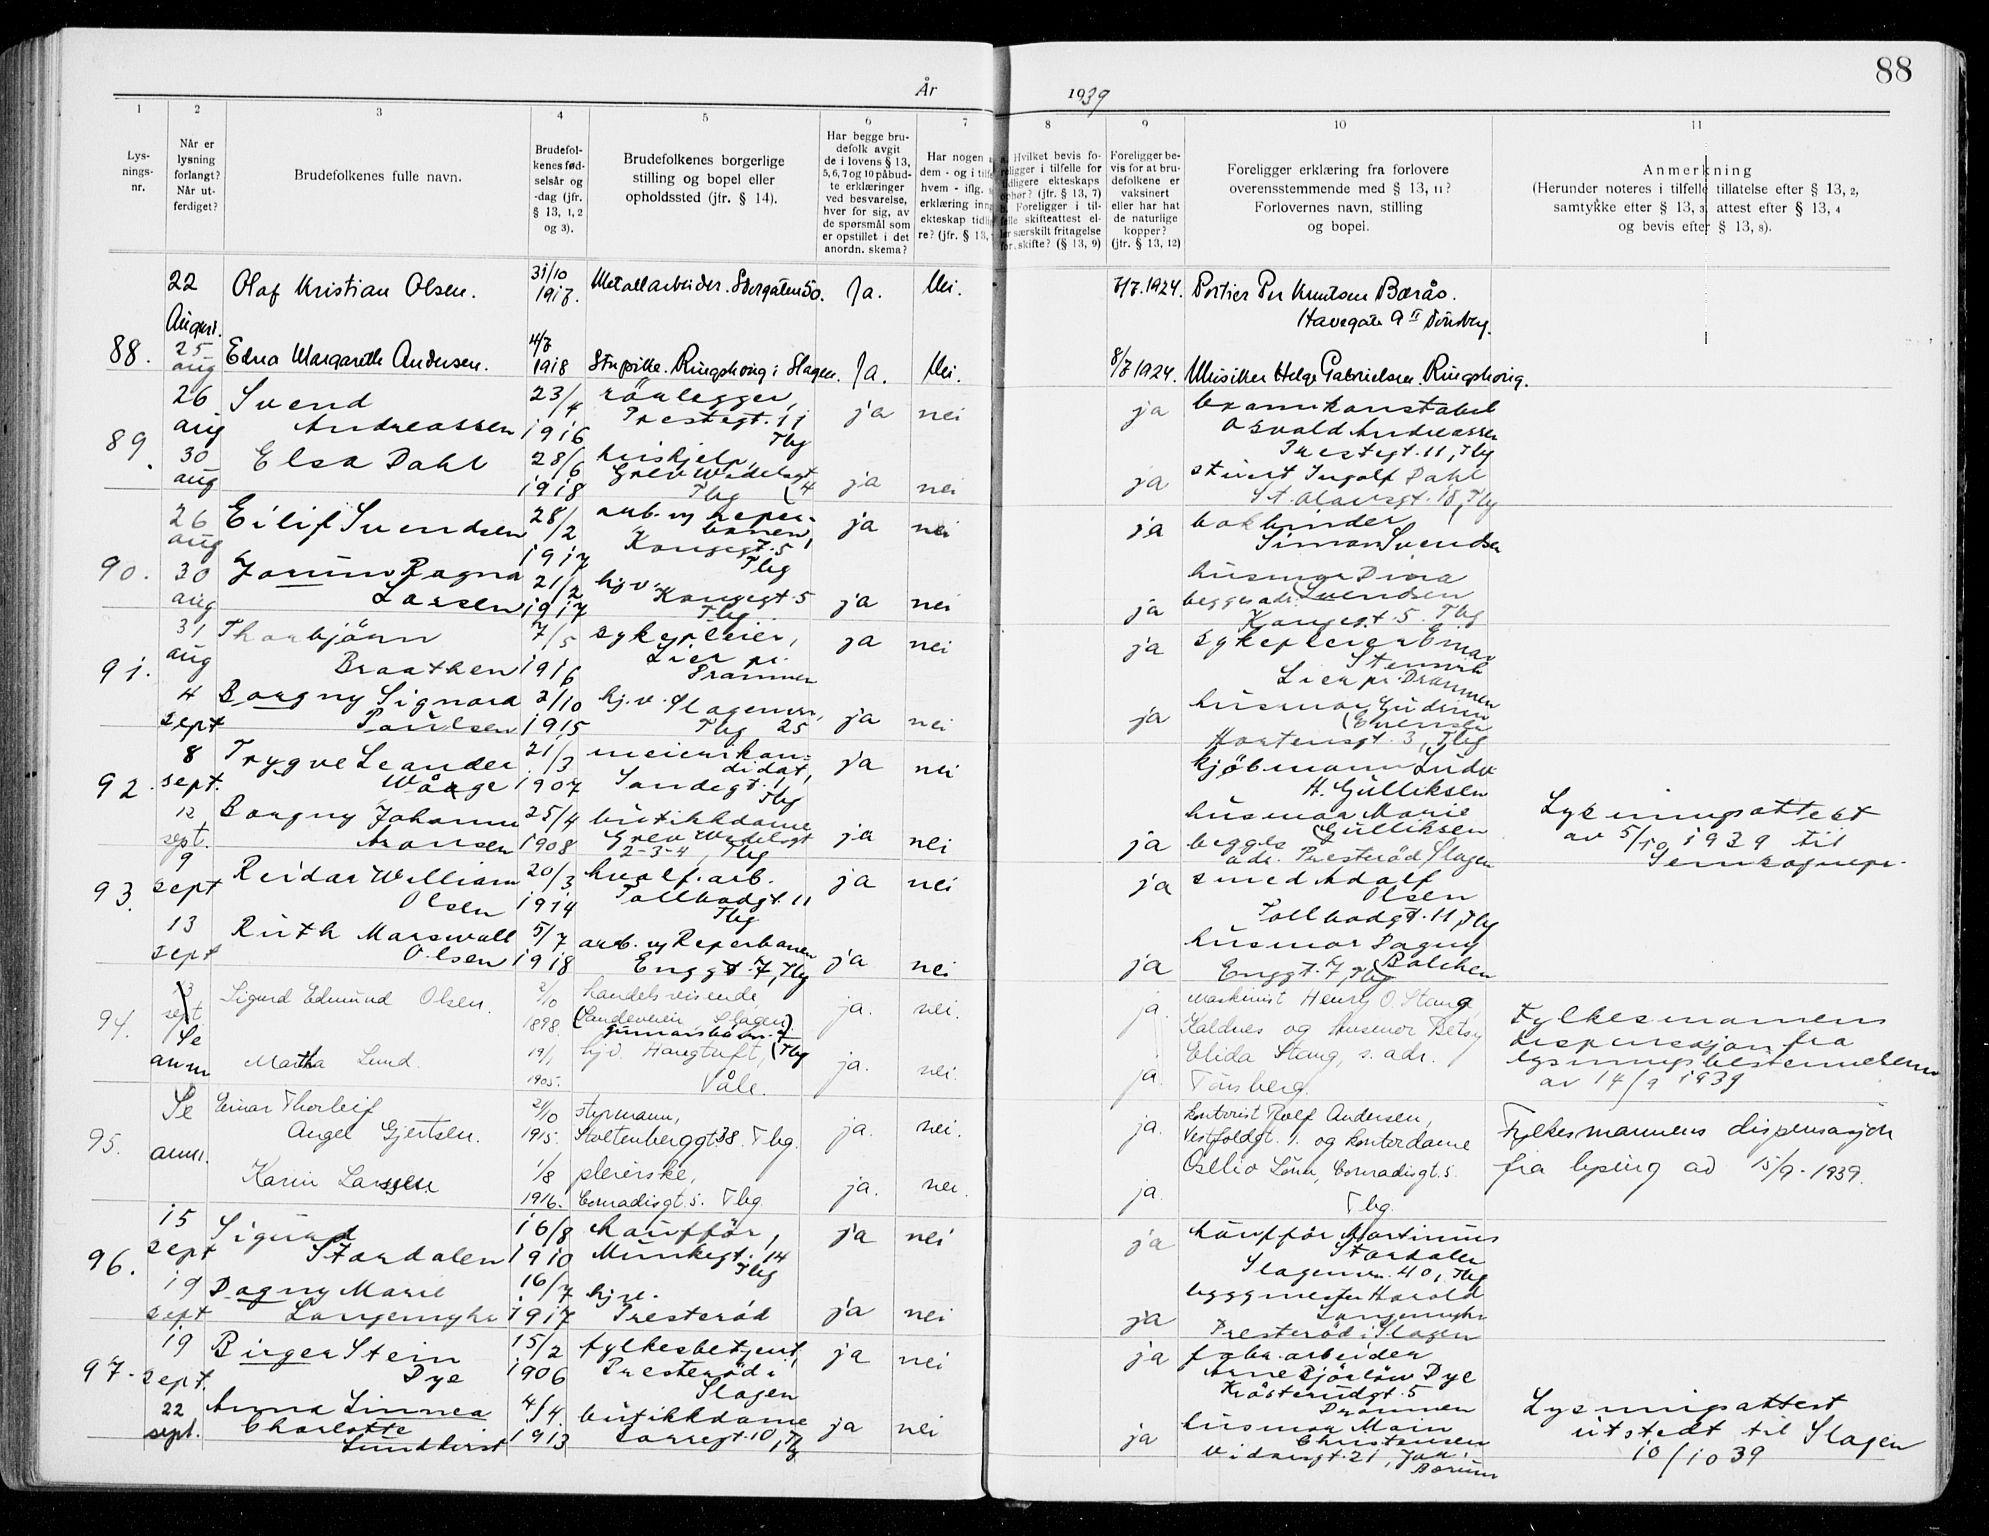 88
År 1939
1
2
3
4
5
6
7
8
9
10
11
Lys-
nings-
nr.
Når er
lysning
forlangt?
Når ut-
ferdiget?
Brudefolkenes fulle navn.
Brudefol-
kenes fød-
selsår og
-dag (jfr.
§ 13, 1, 2
og 3).
Brudefolkenes borgerlige
stilling og bopel eller
opholdssted (jfr. § 14).
Har begge bru-
defolk avgit
de i lovens § 13,
5, 6, 7 og 10 påbud-
te erklæringer
ved besvarelse,
hver for sig, av
de spørsmål som
er opstillet i det
anordn. skema?
Har nogen a
dem - og i tilfe
hvem - iflg.
erklæring inng
ekteskap tidlig
re? (jfr. § 13,
a. Hvilket bevis fo-
religger i tilfelle for
tidligere ekteskaps
ophør? (jfr. § 13, 7)
b. Foreligger i til-
felle skifteattest el-
ler særskilt fritagelse
for skifte? (§ 13, 9)
Foreligger be-
vis for at bru-
defolkene er
vaksinert
eller har hat
de naturlige
kopper?
(jfr. § 13, 12)
Foreligger erklæring fra forlovere
overensstemmende med § 13, 11?
Forlovernes navn, stilling
og bopel.
Anmerkning
(Herunder noteres i tilfelle tillatelse efter § 13, 2,
samtykke efter § 13, 3, attest efter § 13, 4
og bevis efter § 13, 8).
88.
22
August.
Olaf Kristian Olsen.
31/10
1917.
Metallarbeider. Storgaten 50.
Ja.
Nei.
7/7.1924.
Portier Per Knutsen Bærås.
Havegate 9 II Tönsberg.
25
aug
Edna Margareth Andersen.
4/7
1918
Ringshoug i Slagen.
Ja.
Nei.
8/7 1924.
Musiker Helge Gabrielsen Ringshoug.
89.
26
aug
Svend
Andreassen
23/4
1916
rörlegger,
Prestegt. 11
Tbg
ja
nei
ja
brannkonstabel
Osvald Andreassen
Prestegt. 11, Tbg
30
aug
Elsa Dahl
28/6
1918
hushjelp
Grev Wedelsgt
4
Tbg
ja
nei
ja
stuert Ingolf Dahl
St. Olavsgt. 18, Tbg
90.
26
aug
Eilif Svendsen
28/2
1917
arb. v/ reper-
banen,
Kongegt. 5
Tbg
ja
nei
ja
bokbinder
Simon Svendsen
30
aug
Jorunn Ragna
Larsen
21/2
1917
hj.v.
Kongegt 5
Tbg
ja
nei
ja
husmor Dina
Svendsen
begges adr.
Kongegt. 5. Tbg
91.
31
aug
Thorbjörn
Braathen
7/5
1916
sykepleier,
Lier pr.
Drammen
ja
nei
ja
sykepleier Einar
Stensvik
Lier pr. Drammen
4
sept
Borgny Signora
Paulsen
2/10
1915
hj.v. Slagenvn.
25
Tbg
ja
nei
ja
husmor Gudrun
Evensen
Hortensgt. 3, Tbg
92.
8
sept.
Trygve Leander
Wåge
21/3
1907
meierikan-
didat,
Sandegt.
Tbg
ja
nei
kjöbmann Ludv.
H. Gulliksen
12
sept.
Borgny Johanne
Aronsen
25/4
1908
butikkdame
Grev Wedelsgt
2-3-4, Tbg
ja
nei
ja
husmor Marie
Gulliksen
begges
adr. Presteröd Slagen
Lysningsattest
av 5/10 1939 til
Sem sognepr.
93.
9
sept
Reidar William
Olsen
20/3
1914
hvalf. arb.
Tollbodgt. 11
Tbg
ja
nei
ja
smed Adolf
Olsen
Tollbodgt. 11, Tbg
13
sept
Ruth Marswall
Olsen
5/7
1918
arb. v/ Reperbanen
Enggt. 7, Tbg
ja
nei
ja
husmor Dagny
Balchen
Enggt. 7, Tbg
94.
13
sept
Se
anm
Sigurd Edmund Olsen.
2/10
1898.
handelsreisende
(Sandeveien Slagen)
Tbg
ja.
nei.
ja.
Maskinist Henry O. Stang
Kaldnes og husmor Betsy
Elida Stang, s. adr.
Tönsberg.
Martha Lund.
19/1
1905.
hj.v. Haugtuft,
Våle.
ja.
nei.
ja.
Fylkesmannens
dispensasjon fra
lysningsbestemmelsene
av 14/9 1939
95.
Se
anm.
Einar Thorleif
Angel Gjertsen.
21/10
1915.
styrmann,
Stoltenberggt 38. Tbg.
ja.
nei.
ja.
kontorist Rolf Andersen,
Vestfoldgt. 1. og kontordame
Conradisgt. 5.
Tbg.
Karin Larssen.
1/8
1916.
pleierske,
Conradisgt. 5. Tbg.
ja.
nei.
ja.
Fylkesmannens dispensasjon
fra lysning ad 15/9-1939.
96.
15
sept
Sigurd
Stordalen
16/8
1910
chaufför,
Munkegt. 14
Tbg
ja
nei
ja
chaufför Martinius
Stordalen
Slagenvn. 40, Tbg
19
sept
Dagny Marie
Langemyhr
16/7
1917
hj.v.
Presteröd
ja
nei
ja
byggmester Harald
Langemyhr
Presteröd i Slagen
97.
19
sept.
Birger Stein
Dye
15/2
1906
fylkesbetjent,
Presteröd i
Slagen
ja
nei
ja
fabr. arbeider
Arne Björlöw Dye
5
Drammen
22
sept.
Anna Linnea
Charlotte
Lundkvist
4/4.
1913
butikkdame
Torvegt. 10, Tbg
ja
nei
ja
husmor Main
Christensen
Vidarsgt. 21, Jar,
Bærum
Lysningsattest
utstedt til Slagen
10/10 39